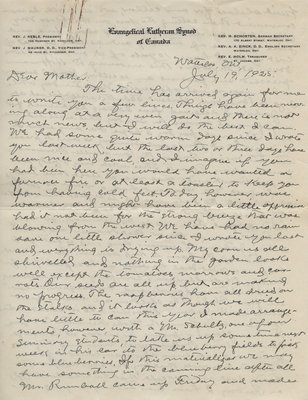 Evangelical Lutheran Synod
of Canada
REV. J. REBLE, PRESIDENT
REV. J. MAURER, D.D., VICE-PRESIDENT
GERMAN SECRETARY
REV. A. A. ENGLISH SECRETARY
REV. E. HOLM, TREASURER
Waterloo Ont
July 19, 1925.
Dear Mother
The time has arrived again for me
to write you a few lines. Things have been mov-
ing along at a very even gait and there is not
much news but I will do the best I can.
We had some quite warm days since I wrote
you last week but the last two or three days have
been nice and cool, and I imagine if you
had been here you would have wanted a
furnace fire or at least a coal oil to keep
you from having cold feet. To day Sunday was
warmer and might have been a little oppressive
had it not been for the strong breeze that was
blowing from the west. We have had no rain
save one little shower since I wrote you last
and everything is drying up. My corn is all
shrivelled and nothing in the garden looks
well except the tomatoes, marrows and car-
rots. Our seeds are all up but are making
no progress. The raspberries have all dried on
the stalks and it looks as though we will
have little to can this year. I made arrange-
ments however with a Mr. Schultz, one of our
Seminary students to take us up some time next
week in his car to the blueberry fields to pick
some blueberries. If this materializes we may
have something in the canning line after all.
Mr. Rumball came up Friday and made